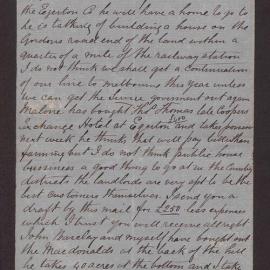 the Egerton Co he will have a home to go to
he is talking of building a house on the
Gordons road end of the land within a
quarter of a mile of the railway station
I do not think we shall get a continuation
of our line to Melbourne this year unless
we can get the government out again
Malone has bought Thomas Coopers
Exchange Hotel at Egerton and takes possession
next week he thinks that will pay better than
farming but I do not think public house
bussiness a good thing to go at in the country
districts the landlords are very apt to be the
best customers themselves. I send you a
draft by this mail for £250 less expences
which I trust you will receive all right
John Barclay and myself have bought out
the Macdonalds at the back of the hill
he takes 40 acres at the bottom and I take